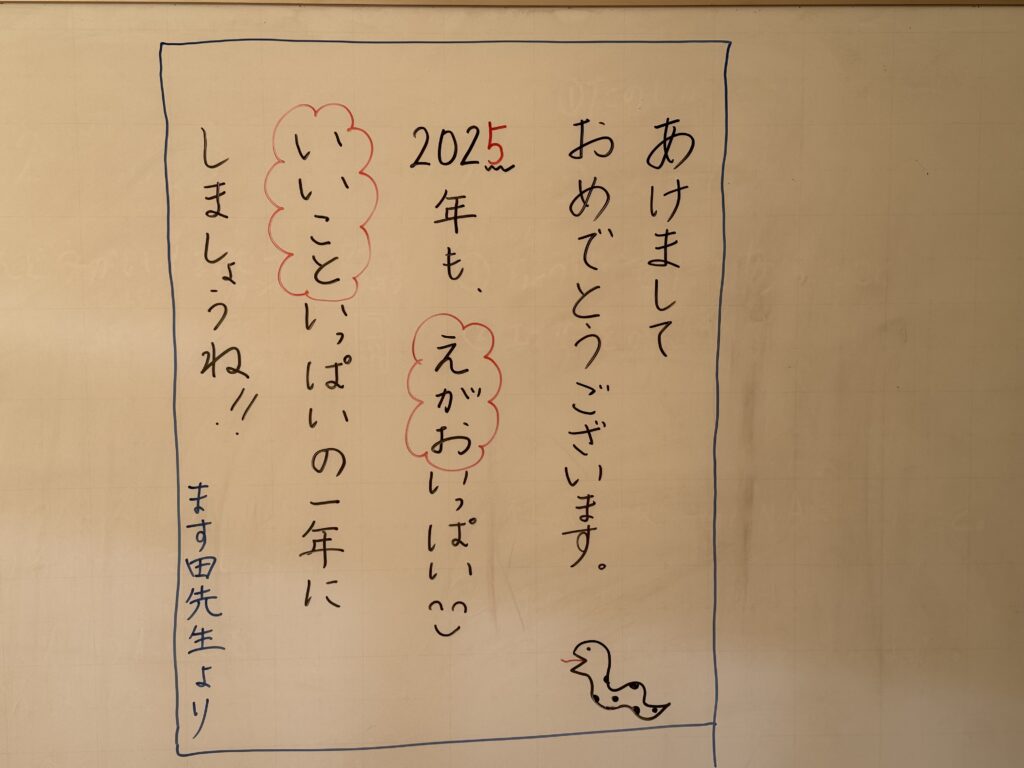 あけまして
おめでとうございます。
2025年も、えがおいっぱい
いいこといっぱいの一年に
しましょうね!!
ます田先生より